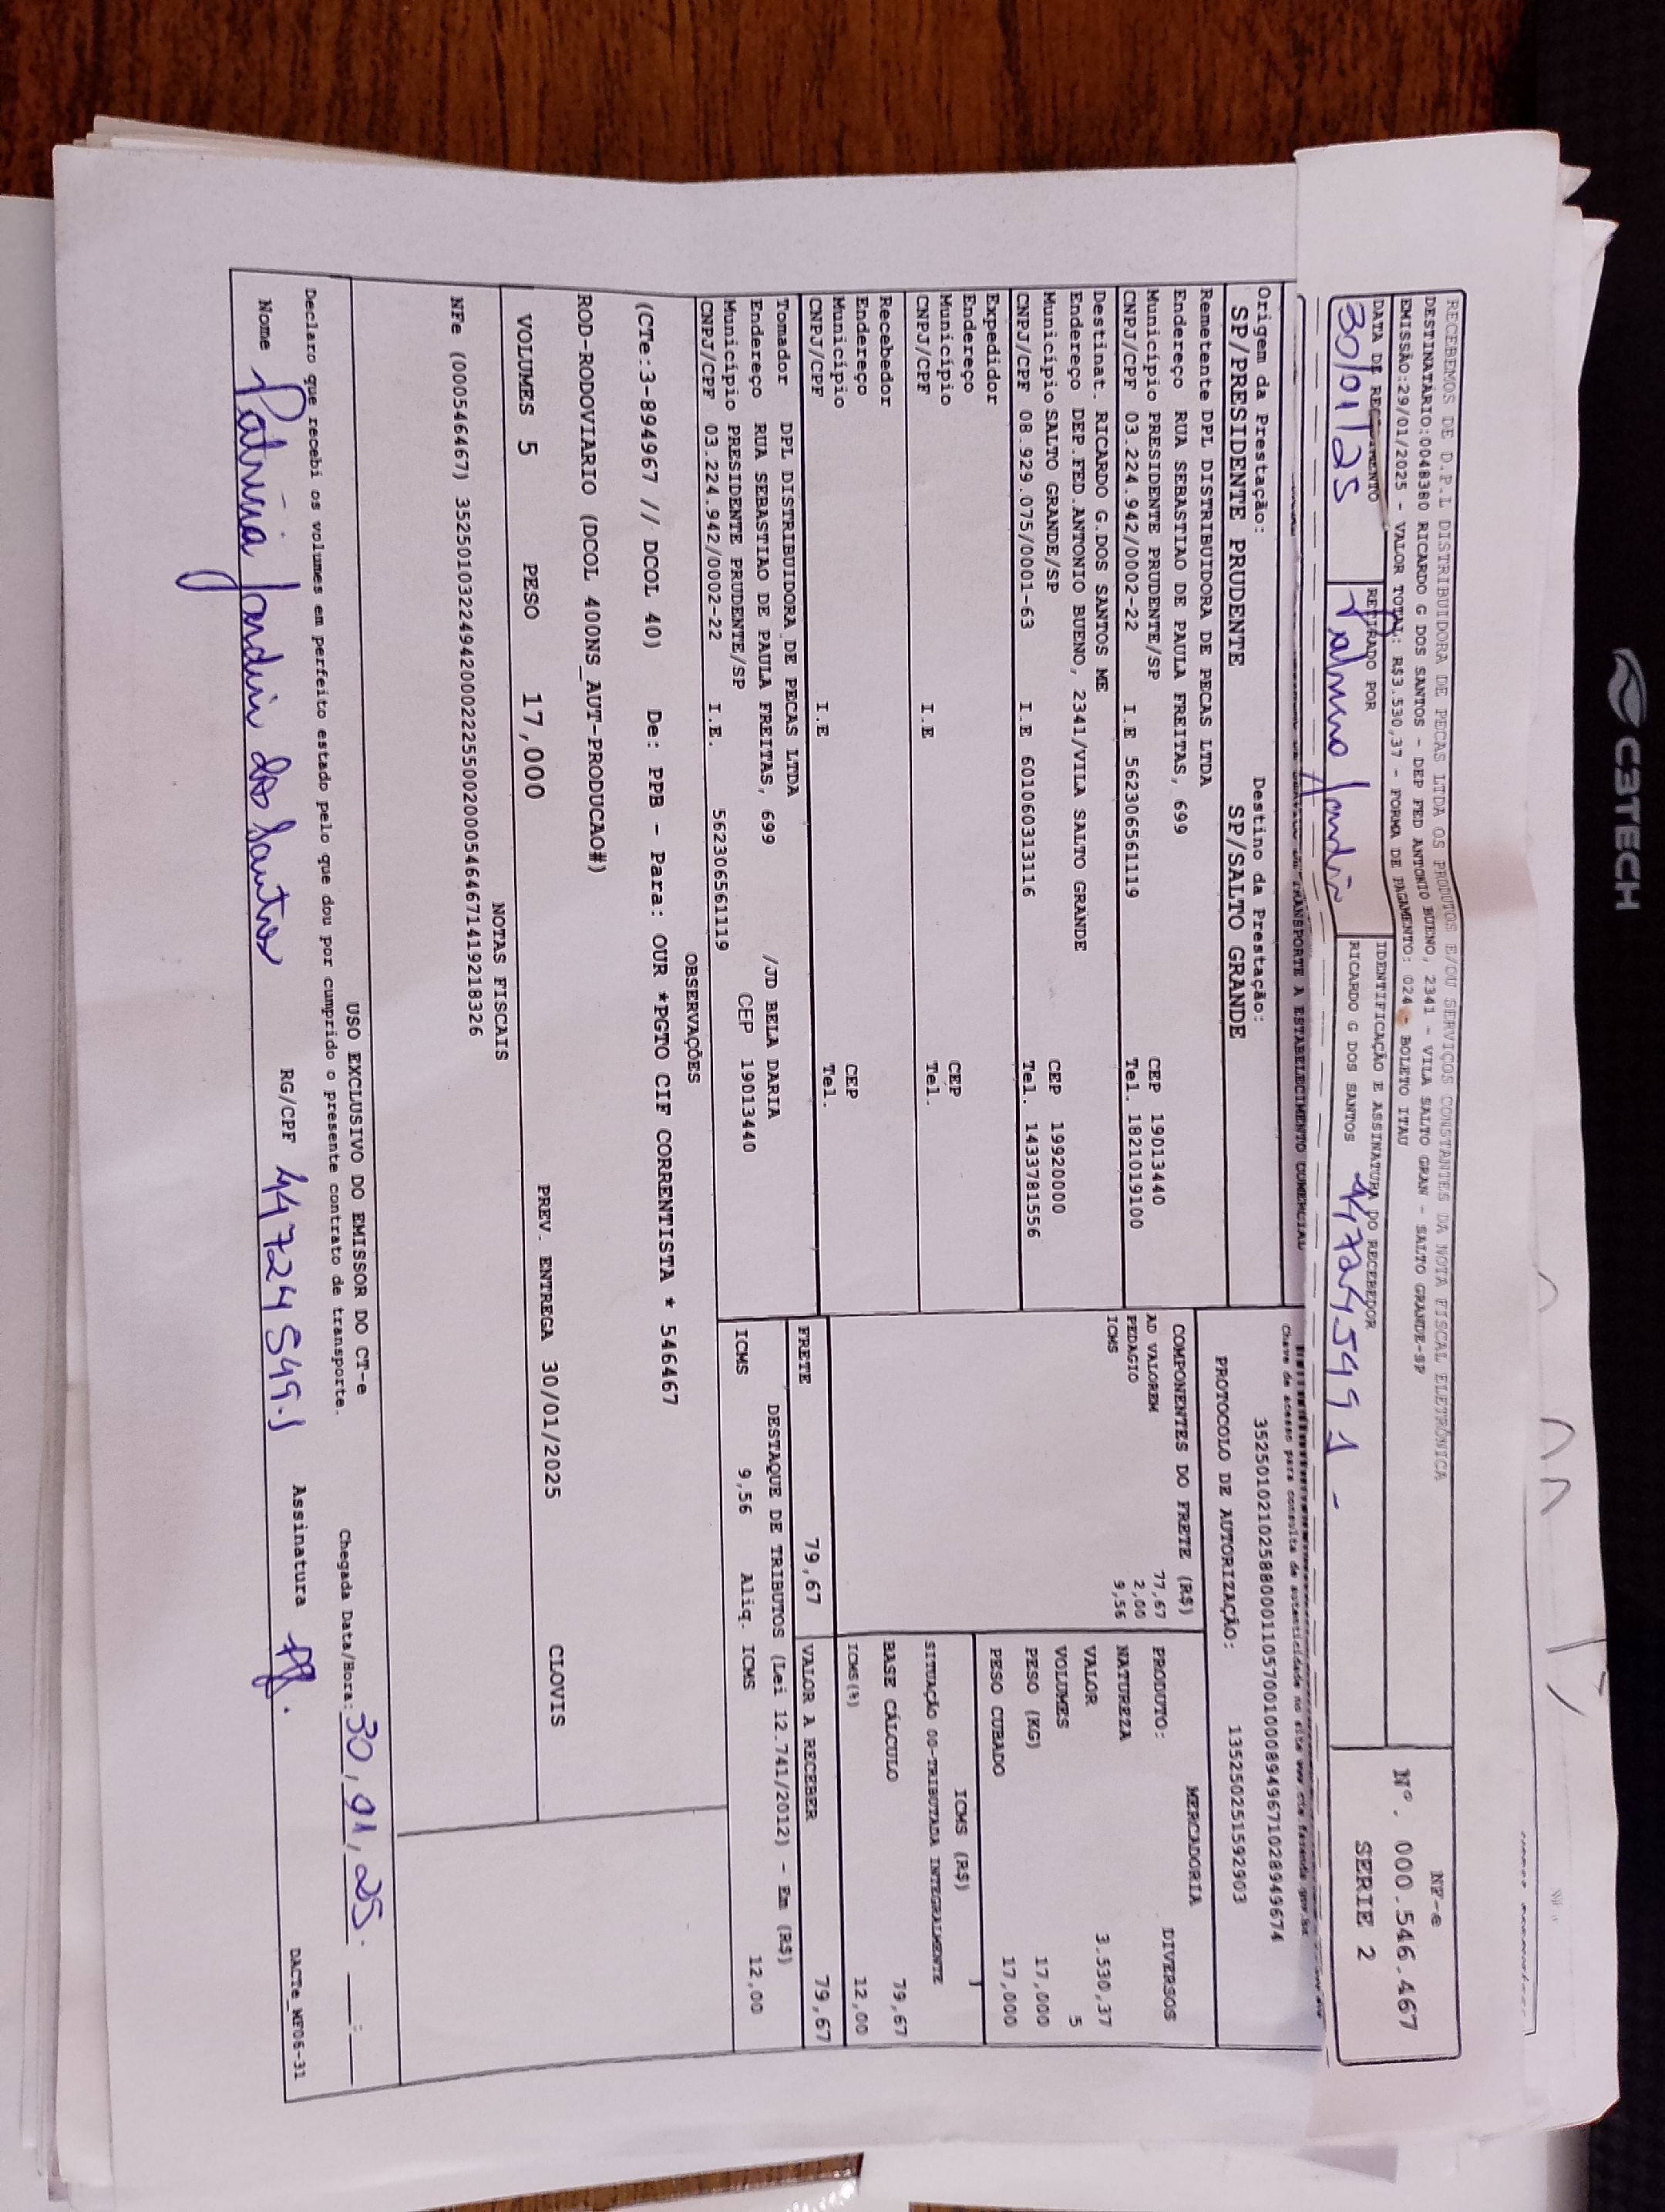 RECEBEMOS DE D.P.L DISTRIBUIDORA DE PECAS LTDA OS PRODUTOS E/OU SERVIÇOS CONSTANTES DA NOTA FISCAL ELETRÔNICA
DESTINATÁRIO:0048380 RICARDO G DOS SANTOS - DEP FED ANTONIO BUENO, 2341 - VILA SALTO GRAN - SALTO GRANDE-SP
EMISSÃO:29/01/2025 - VALOR TOTAL: R$3.530,37 - FORMA DE PAGAMENTO: 024 - BOLETO ITAU
NF-e
Nº. 000.546.467
SERIE 2
DATA DE RECEBIMENTO
30/01/25
RETIRADO POR
IDENTIFICAÇÃO E ASSINATURA DO RECEBEDOR
RICARDO G DOS SANTOS 447245491-
TRANSPORTE A ESTABELECIMENTO COMERCIAL
Chave de acesso para consulta de autenticidade no site www.cte.fazenda.gov.br
35250102102588000110570010008949671028949674
Origem da Prestação: Destino da Prestação:
SP/PRESIDENTE PRUDENTE SP/SALTO GRANDE
PROTOCOLO DE AUTORIZAÇÃO: 135250251592903
Remetente DPL DISTRIBUIDORA DE PECAS LTDA
Endereço RUA SEBASTIAO DE PAULA FREITAS, 699
Município PRESIDENTE PRUDENTE/SP CEP 19013440
CNPJ/CPF 03.224.942/0002-22 I.E 562306561119 Tel. 1821019100
Destinat. RICARDO G.DOS SANTOS ME
Endereço DEP.FED.ANTONIO BUENO, 2341/VILA SALTO GRANDE
Município SALTO GRANDE/SP CEP 19920000
CNPJ/CPF 08.929.075/0001-63 I.E 601060313116 Tel. 1433781556
Expedidor
Endereço
Município CEP
CNPJ/CPF I.E Tel.
Recebedor
Endereço
Município CEP
CNPJ/CPF I.E Tel.
COMPONENTES DO FRETE (R$)
AD VALOREM 77,67
PEDAGIO 2,00
ICMS 9,56
MERCADORIA
PRODUTO: DIVERSOS
NATUREZA
VALOR 3.530,37
VOLUMES 5
PESO (KG) 17,000
PESO CUBADO 17,000
ICMS (R$)
SITUAÇÃO 00-TRIBUTADA INTEGRALMENTE
BASE CÁLCULO 79,67
ICMS(%) 12,00
FRETE 79,67 VALOR A RECEBER 79,67
Tomador DPL DISTRIBUIDORA DE PECAS LTDA
Endereço RUA SEBASTIAO DE PAULA FREITAS, 699 /JD BELA DARIA
Município PRESIDENTE PRUDENTE/SP CEP 19013440
CNPJ/CPF 03.224.942/0002-22 I.E. 562306561119
DESTAQUE DE TRIBUTOS (Lei 12.741/2012) - Em (R$)
ICMS 9,56 Aliq. ICMS 12,00
OBSERVAÇÕES
(CTe:3-894967 // DCOL 40) De: PPB - Para: OUR *PGTO CIF CORRENTISTA * 546467
ROD-RODOVIARIO (DCOL 400NS_AUT-PRODUCAO#)
VOLUMES 5 PESO 17,000 PREV. ENTREGA 30/01/2025 CLOVIS
NOTAS FISCAIS
NFe (000546467) 35250103224942000222550020005464671419218326
USO EXCLUSIVO DO EMISSOR DO CT-e
Declaro que recebi os volumes em perfeito estado pelo que dou por cumprido o presente contrato de transporte. Chegada Data/Hora: 30/01/25. __:__
Nome Patrícia Jandir dos Santos RG/CPF 44724549.1 Assinatura
DACTe_MF06-31
C3TECH